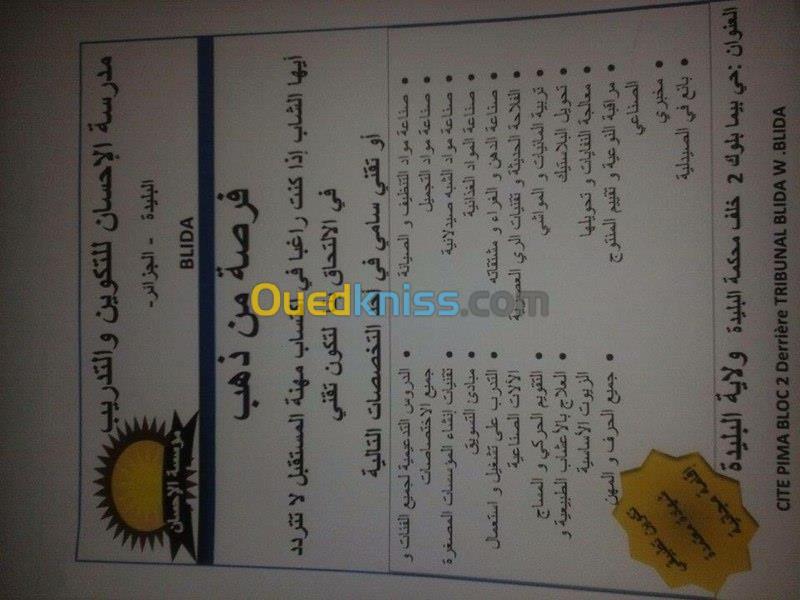 مدرسة الإحسان للتكوين والتدريب
البليدة - الجزائر-
BLIDA
مؤسسة الإحسان
فرصة من ذهب
أيها الشاب إذا كنت راغبا في اكتساب مهنة المستقبل لا تتردد
في الالتحاق بنا لتكون تقني
أو تقني سامي في أحد التخصصات التالية
• صناعة مواد التنظيف و الصيانة
• صناعة مواد التجميل
• صناعة مواد الشبه صيدلانية
• صناعة المواد الغذائية
• صناعة الدهن و الغراء و مشتقاته
• الفلاحة الحديثة و تقنيات الري العصرية
• تربية المائيات و المواشي
• تحويل البلاستيك
• معالجة النفايات و تحويلها
• مراقبة النوعية و تقييم المنتوج
الصناعي
• مخبري
• بائع في الصيدلية
• الدروس التدعيمية لجميع الفئات و
جميع الاختصاصات
• تقنيات إنشاء المؤسسات المصغرة
• مبادئ التسويق
• التدرب على تشغيل و استعمال
الآلات الصناعية
• التقويم الحركي و المساج
• العلاج بالأعشاب الطبيعية و
الزيوت الأساسية
• جميع الحرف و المهن
تكوين تطبيقي
شهادة معتمدة
إقامة مجانية
العنوان :حي بيما بلوك 2 خلف محكمة البليدة ولاية البليدة
CITE PIMA BLOC 2 Derrière TRIBUNAL BLIDA W .BLIDA
Ouedkniss.com